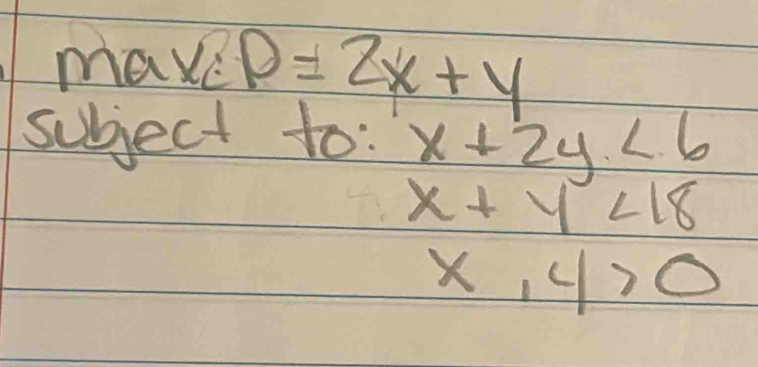 max: P = 2x + y
subject to: x + 2y < 6
x + y < 18
x, y > 0